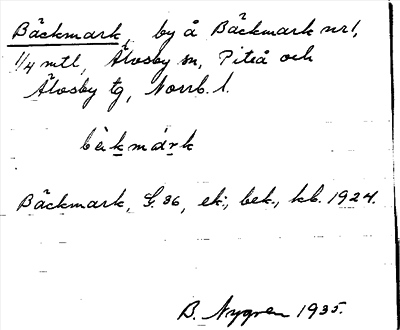 Bäckmark, by å Bäckmark nr 1,
1/4 mtl, Älvsby sn, Piteå och
Älvsby tg, Norrb. l.
bäkmárk
Bäckmark, G. 36, ek:, bek., kb. 1924.
B. Nygren 1935.